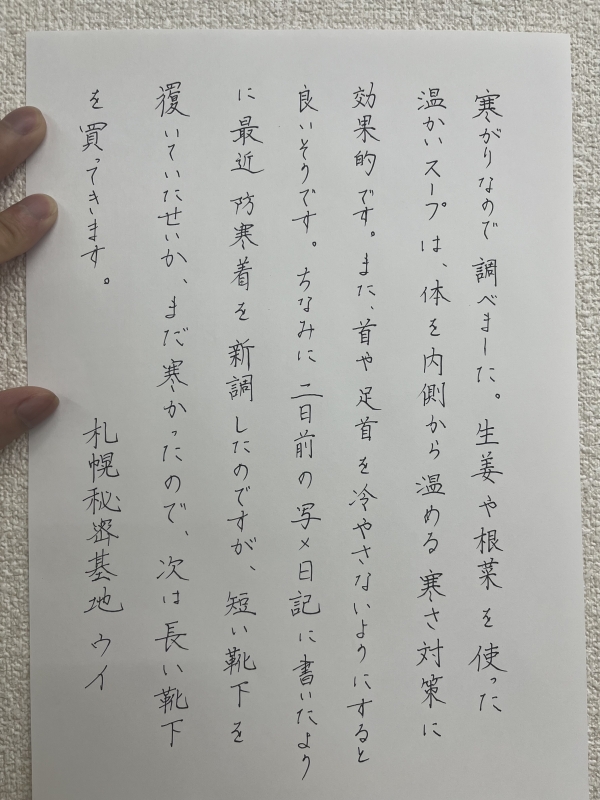 寒がりなので調べました。生姜や根菜を使った
温かいスープは、体を内側から温める寒さ対策に
効果的です。また、首や足首を冷やさないようにすると
良いそうです。ちなみに二日前の写メ日記に書いたより
に最近防寒着を新調したのですが、短い靴下を
履いていたせいか、まだ寒かったので、次は長い靴下
を買ってきます。
札幌秘密基地 ウイ